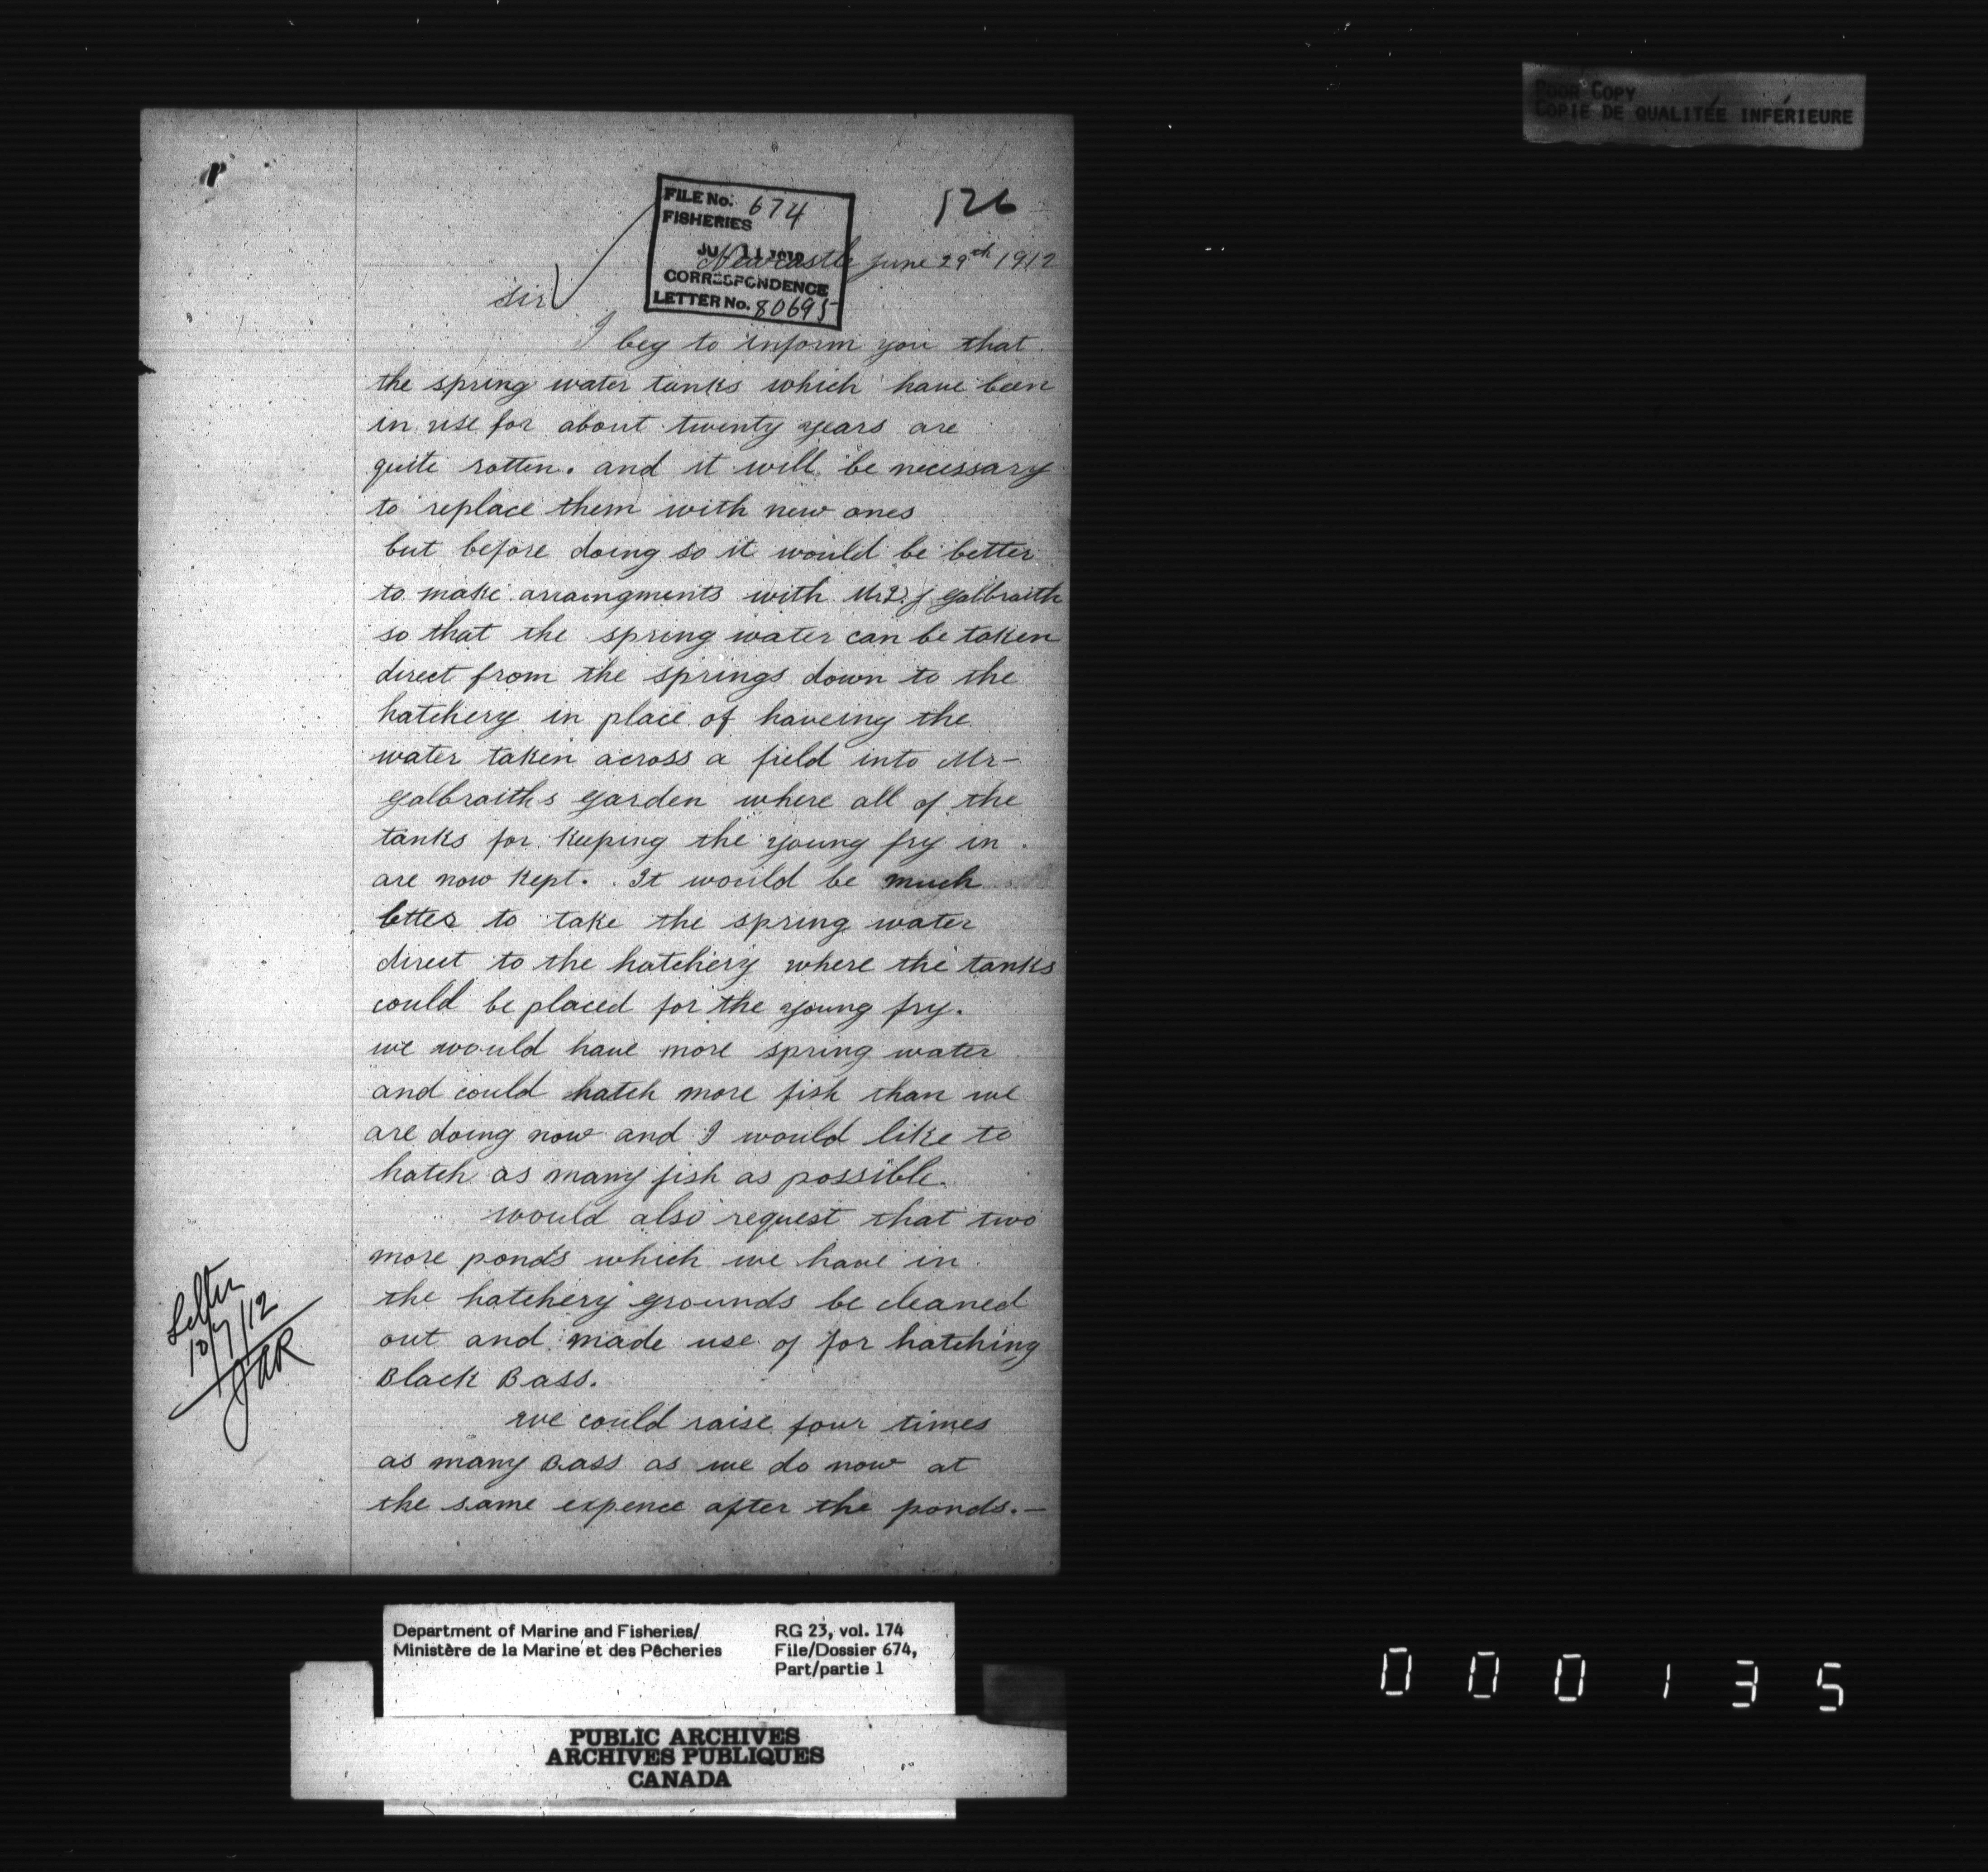 POOR COPY
COPIE DE QUALITÉE INFÉRIEURE
526
FILE No. 674
FISHERIES
CORRESPONDENCE
LETTER No. 80695
Newcastle June 29th 1912
Sir
I beg to inform you that
the spring water tanks which have been
in use for about twenty years are
quite rotten. and it will be necessary
to replace them with new ones
but before doing so it would be better
to make arraingments with Mr J galbraith
so that the spring water can be taken
direct from the springs down to the
hatchery in place of haveing the
water taken across a field into Mr-
galbraiths garden where all of the
tanks for keeping the young fry in
are now kept. It would be much
better to take the spring water
direct to the hatchery where the tanks
could be placed for the young fry.
we would have more spring water
and could hatch more fish than we
are doing now and I would like to
hatch as many fish as possible.
would also request that two
more ponds which we have in
the hatchery grounds be cleaned
out and made use of for hatching
Black Bass.
we could raise four times
as many Bass as we do now at
the same expence after the ponds.—
Letter
10/7/12
JAR
Department of Marine and Fisheries/
Ministère de la Marine et des Pêcheries
RG 23, vol. 174
File/Dossier 674,
Part/partie 1
PUBLIC ARCHIVES
ARCHIVES PUBLIQUES
CANADA
000135